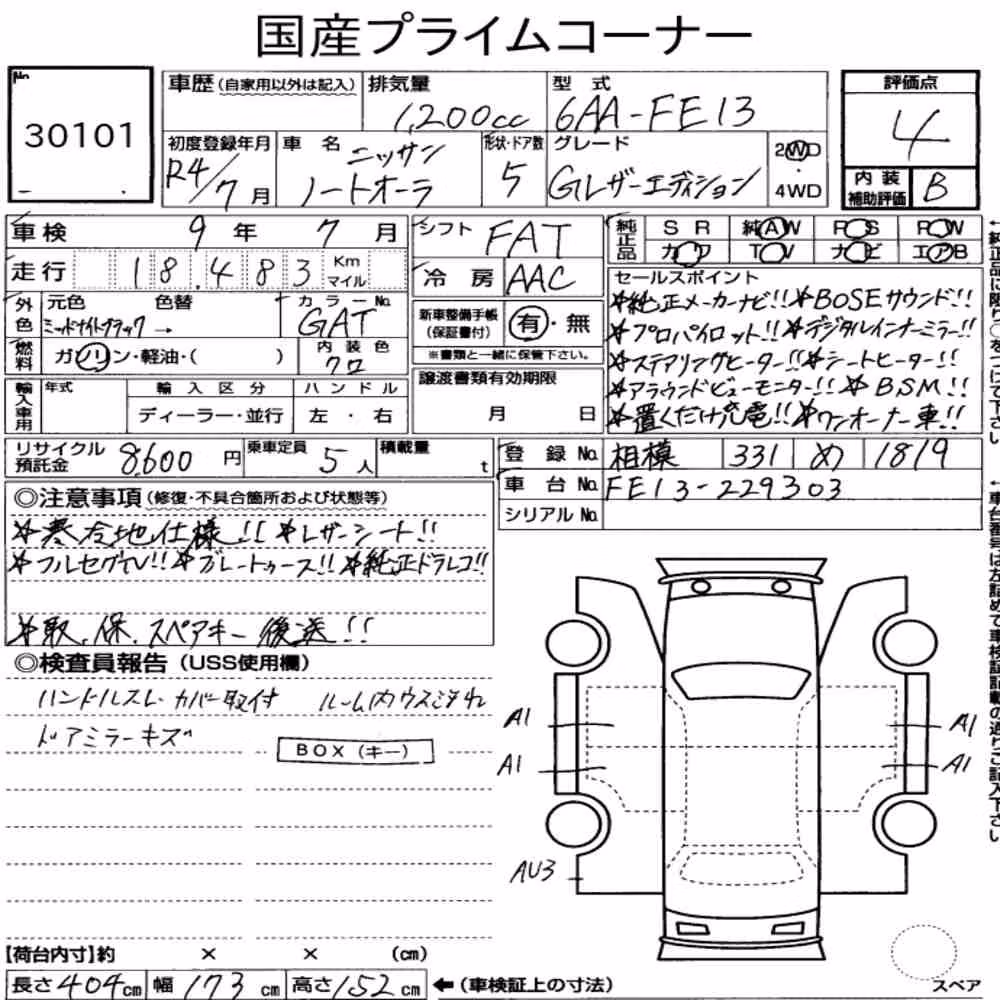 国産プライムコーナー
No.
30101
車歴(自家用以外は記入)
排気量
1,200cc
型式
6AA-FE13
評価点
4
初度登録年月
R4/7月
車名
ニッサン
ノートオーラ
形状・ドア数
5
グレード
Gレザーエディション
2WD
・
4WD
内装
補助評価
B
車検 9年 7月
シフト FAT
純正品
SR 純AW PS PW
カワ TV ナビ エアB
走行 18,483 Km
マイル
冷房 AAC
セールスポイント
*純正メーカーナビ!! *BOSEサウンド!!
*プロパイロット!! *デジタルインナーミラー!!
*ステアリングヒーター!! *シートヒーター!!
*アラウンドビューモニター!! *BSM!!
*置くだけ充電!! *ワンオーナー車!!
外色
元色 色替
ミッドナイトブラック→
カラーNo.
GAT
新車整備手帳
(保証書付)
有・無
※書類と一緒に保管下さい。
燃料
ガソリン・軽油・( )
内装色
クロ
輸入車用
年式
輸入区分
ハンドル
ディーラー・並行
左・右
譲渡書類有効期限
月 日
リサイクル
預託金
8600円
乗車定員
5人
積載量
t
登録No. 相模 331 め 1819
車台No. FE13-229303
シリアルNo.
◎注意事項(修復・不具合箇所および状態等)
*寒冷地仕様!! *レザーシート!!
*フルセグTV!! *プレートゥース!! *純正ドラレコ!!
*取、保、スペアキー後送!!
◎検査員報告(USS使用欄)
ハンドルスレ・カバー取付 ルーム内ウス汚れ
ドアミラーキズ
BOX(キー)
A1
A1
A1
A1
AU3
【荷台内寸】約 × × (cm)
長さ404cm 幅173cm 高さ152cm ←(車検証上の寸法)
スペア
↑純正品に限り○をつけて下さい
↑車台番号は左詰めで車検証記載の通りご記入下さい